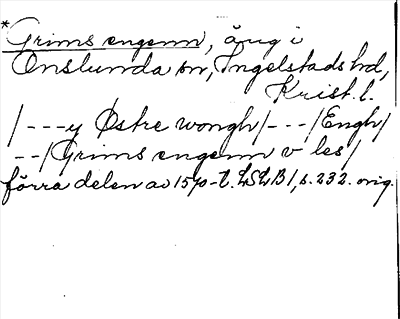 *Grims engenn, äng i
Onslunda sn, Ingelstads hd,
Krist. l.
/---y Østre wongh/---/Engh/
--/Grims engenn v les/
förra delen av 1570-t. LSLB1, s. 232. orig.